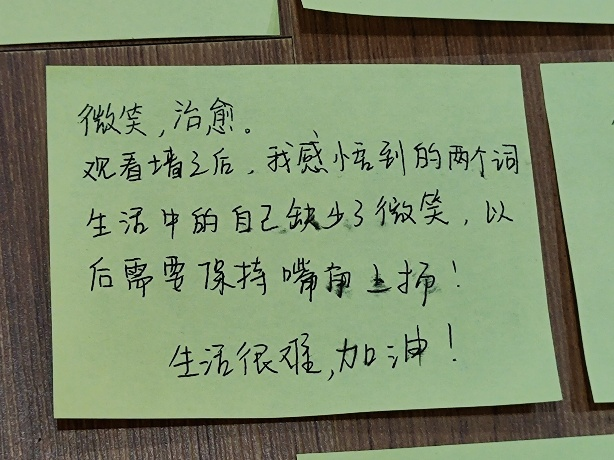 微笑，治愈。
观看墙之后，我感悟到的两个词
生活中的自己缺少了微笑，以
后需要保持嘴角上扬！
生活很难，加油！